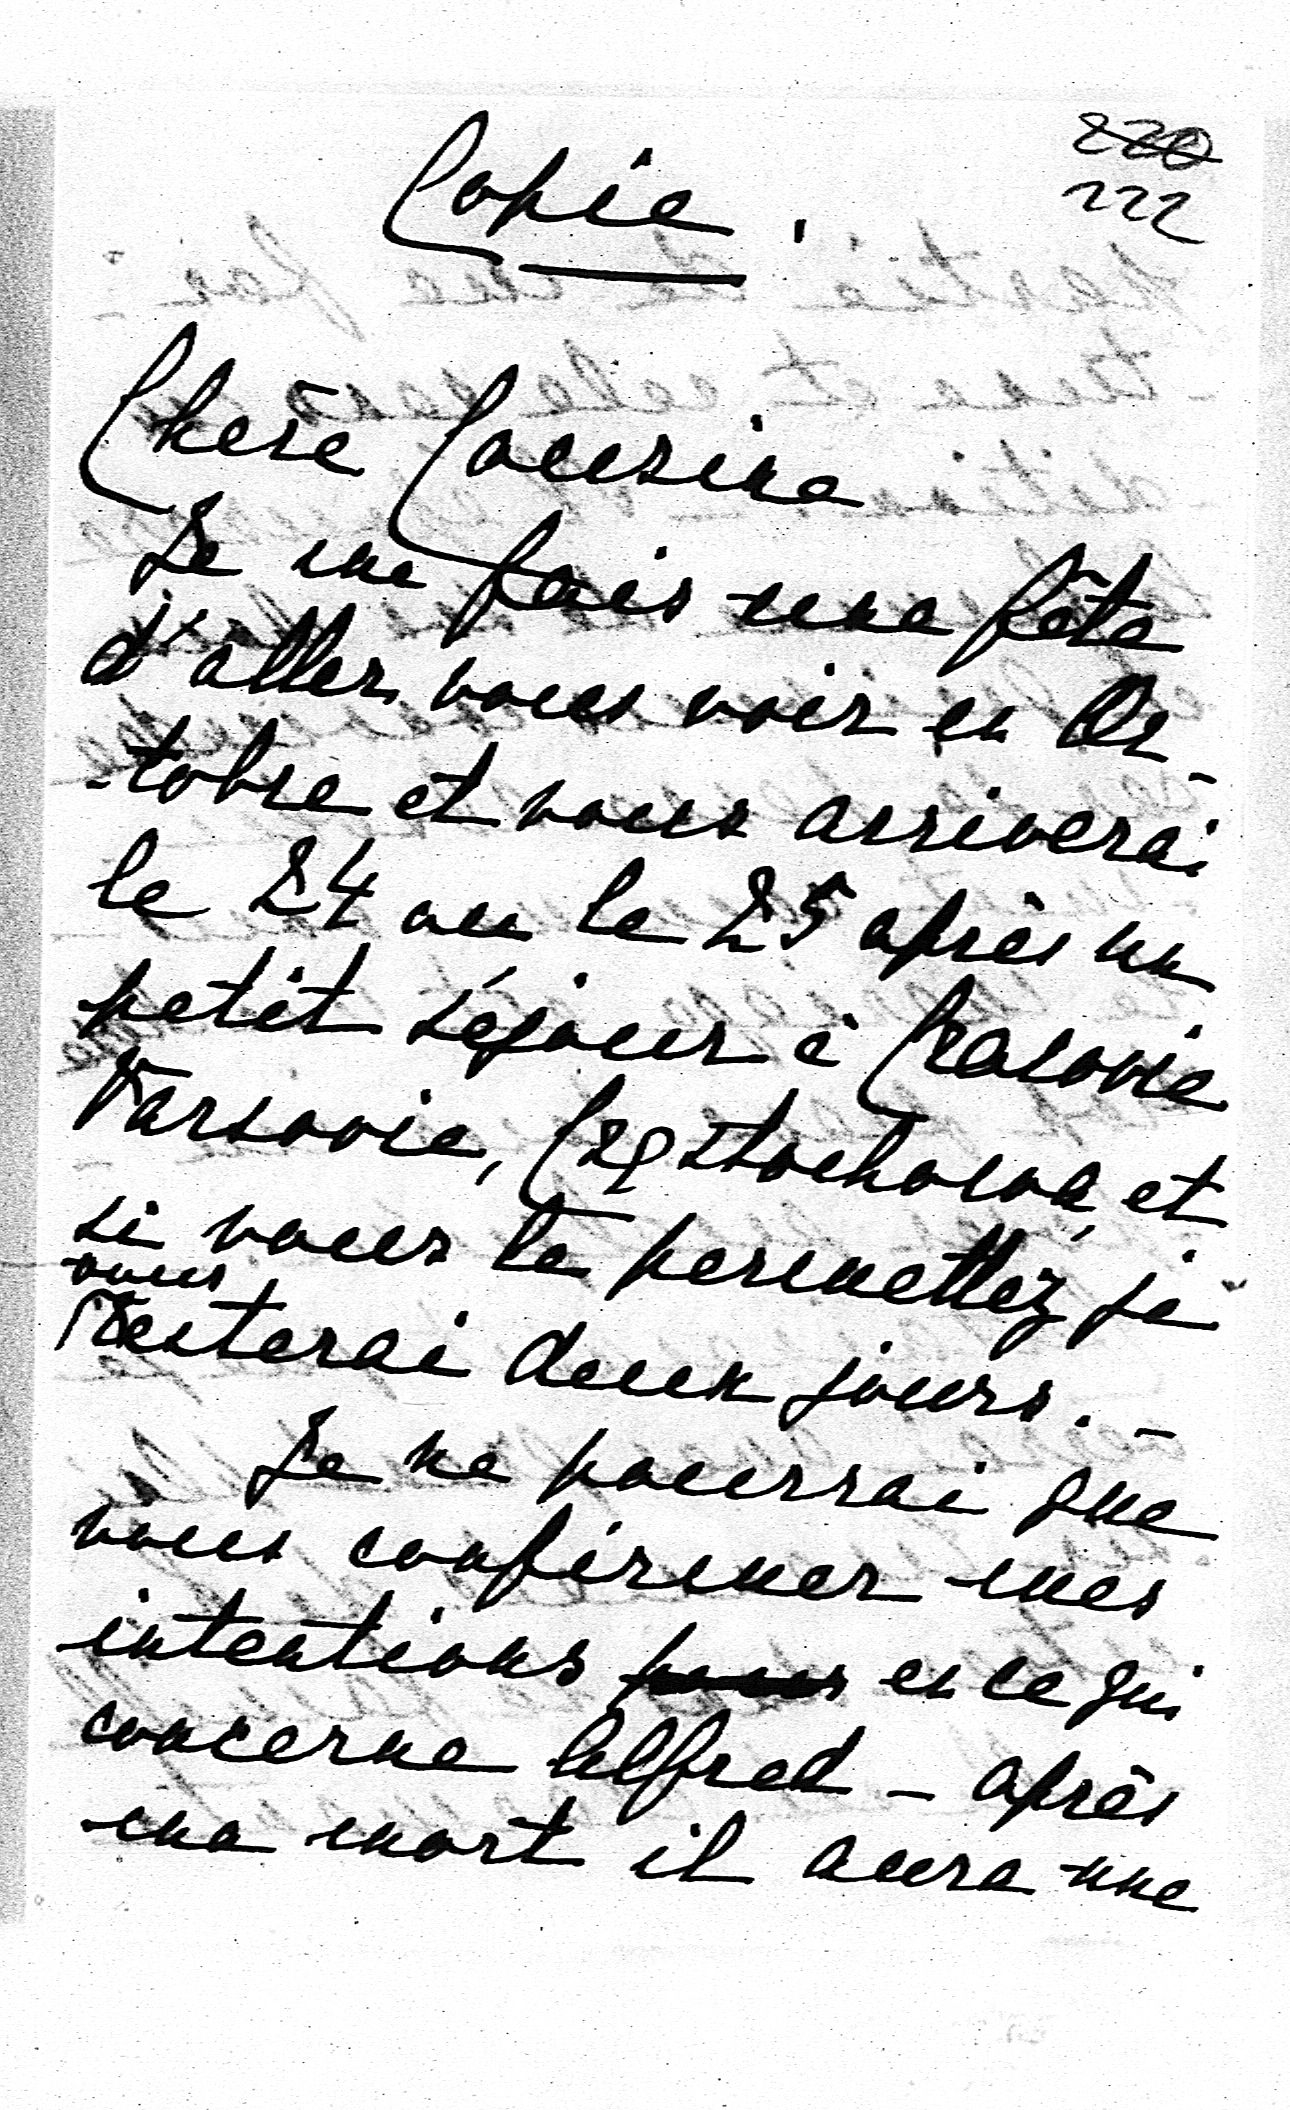 220
222
Copie.
Chère Cousine
Je me fais une fête
d'aller vous voir en Oc-
-tobre et vous arriverai
le 24 ou le 25 après un
petit séjour à Cracovie
Varsovie, Częstochowa, et
si vous le permettez je
vous
resterai deux jours. -
Je ne pourrai que
vous confirmer mes
intentions pour en ce qui
concerne Alfred - après
ma mort il aura une